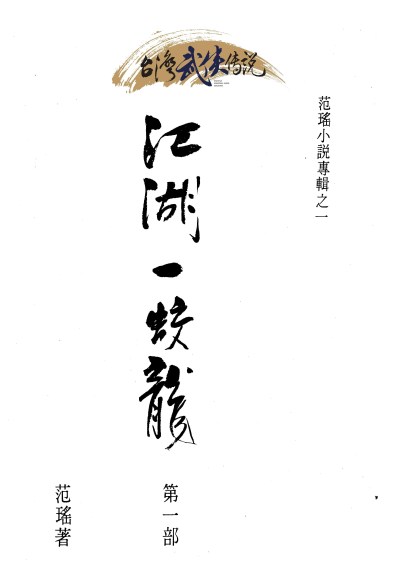 台湾武侠传说
范瑤小説專輯之一
江湖一蛟龍
第一部
范瑤著